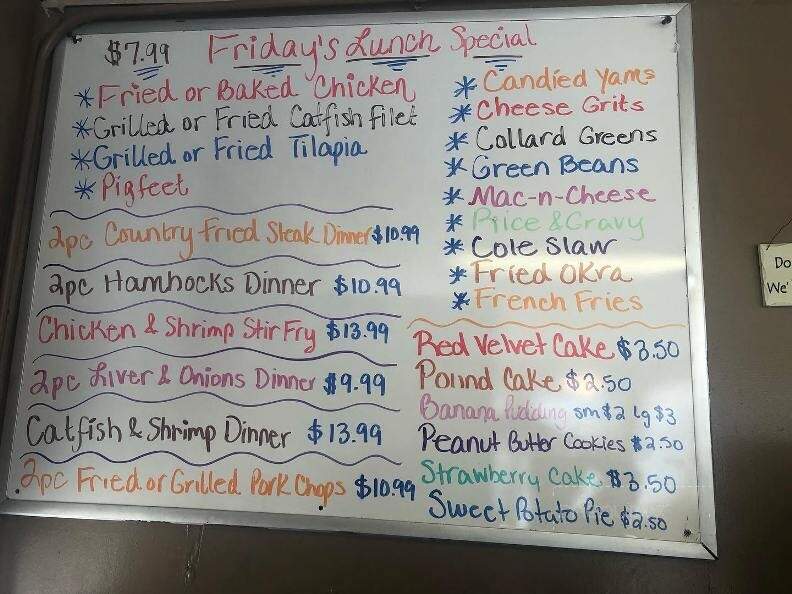 $7.99 Friday's Lunch Special
*Fried or Baked Chicken
*Grilled or Fried Catfish filet
*Grilled or Fried Tilapia
*Pigfeet
2pc Country Fried Steak Dinner $10.99
2pc Hamhocks Dinner $10.99
Chicken & Shrimp Stir Fry $13.99
2pc Liver & Onions Dinner $9.99
Catfish & Shrimp Dinner $13.99
2pc Fried or Grilled Pork Chops $10.99
*Candied Yams
*Cheese Grits
*Collard Greens
*Green Beans
*Mac-n-Cheese
*Rice & Gravy
*Cole Slaw
*Fried Okra
*French Fries
Red Velvet Cake $3.50
Pound Cake $2.50
Banana Pudding sm $2 lg $3
Peanut Butter Cookies $2.50
Strawberry Cake $3.50
Sweet Potato Pie $2.50
Do
We'